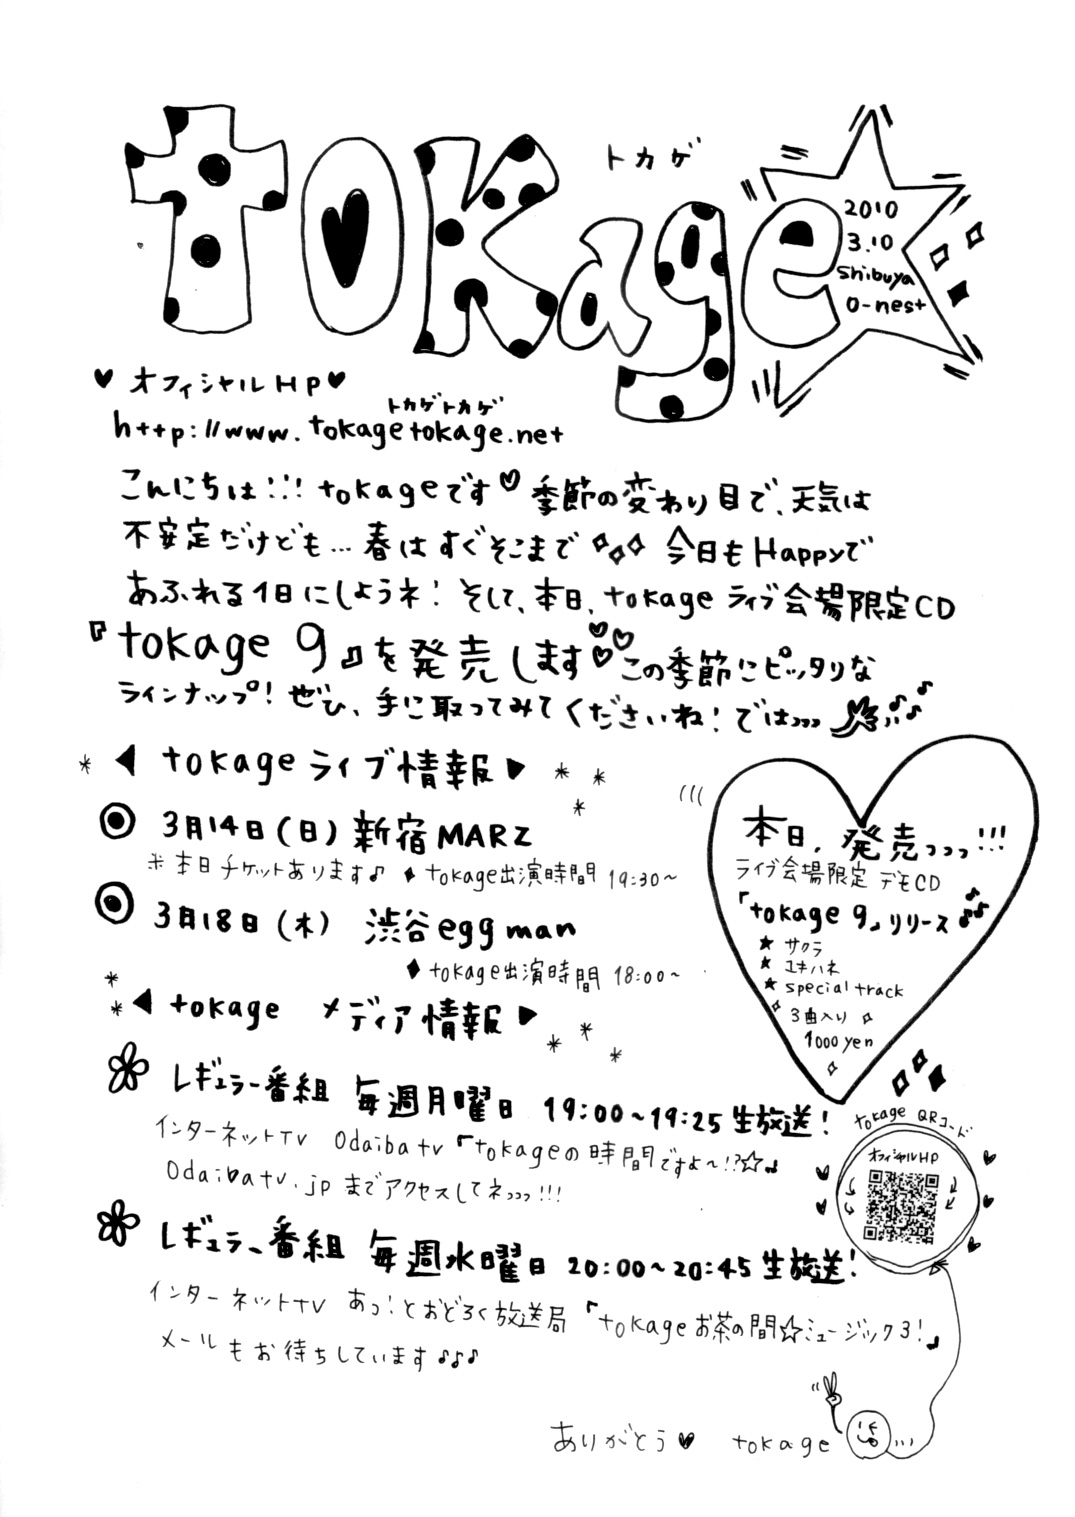 tokage
トカゲ
2010
3.10
shibuya
O-nest
♥ オフィシャルHP♥
トカゲトカゲ
http://www.tokagetokage.net
こんにちは!!! tokageです♡ 季節の変わり目で、天気は
不安定だけども… 春はすぐそこまで 今日もHappyで
あふれる1日にしようネ! そして、本日、tokage ライブ会場限定CD
『tokage 9』を発売します♡♡♡ この季節にピッタリな
ラインナップ! ぜひ、手に取ってみてくださいね! ではっっっ ♪♪♪
* ◀ tokage ライブ情報 ▶ * * *
◎ 3月14日(日) 新宿MARZ
※本日チケットあります♪ ♦ tokage出演時間 19:30〜
◎ 3月18日(木) 渋谷eggman
♦ tokage出演時間 18:00〜
* * ◀ tokage メディア情報 ▶ * * *
レギュラー番組 毎週月曜日 19:00〜19:25 生放送!
インターネットTV Odaiba tv 『tokageの時間ですよ〜!?☆』
Odaiba tv.jp までアクセスしてネっっっ!!!
レギュラー番組 毎週水曜日 20:00〜20:45 生放送!
インターネットTV あっ!とおどろく放送局 『tokageお茶の間☆ミュージック3!』
メールもお待ちしています♪♪♪
本日、発売っっっ!!!
ライブ会場限定 デモCD
「tokage 9」リリース♪♪
★ サクラ
★ ユキハネ
★ special track
3曲入り
1000yen
tokage QRコード
オフィシャルHP
ありがとう♥ tokage